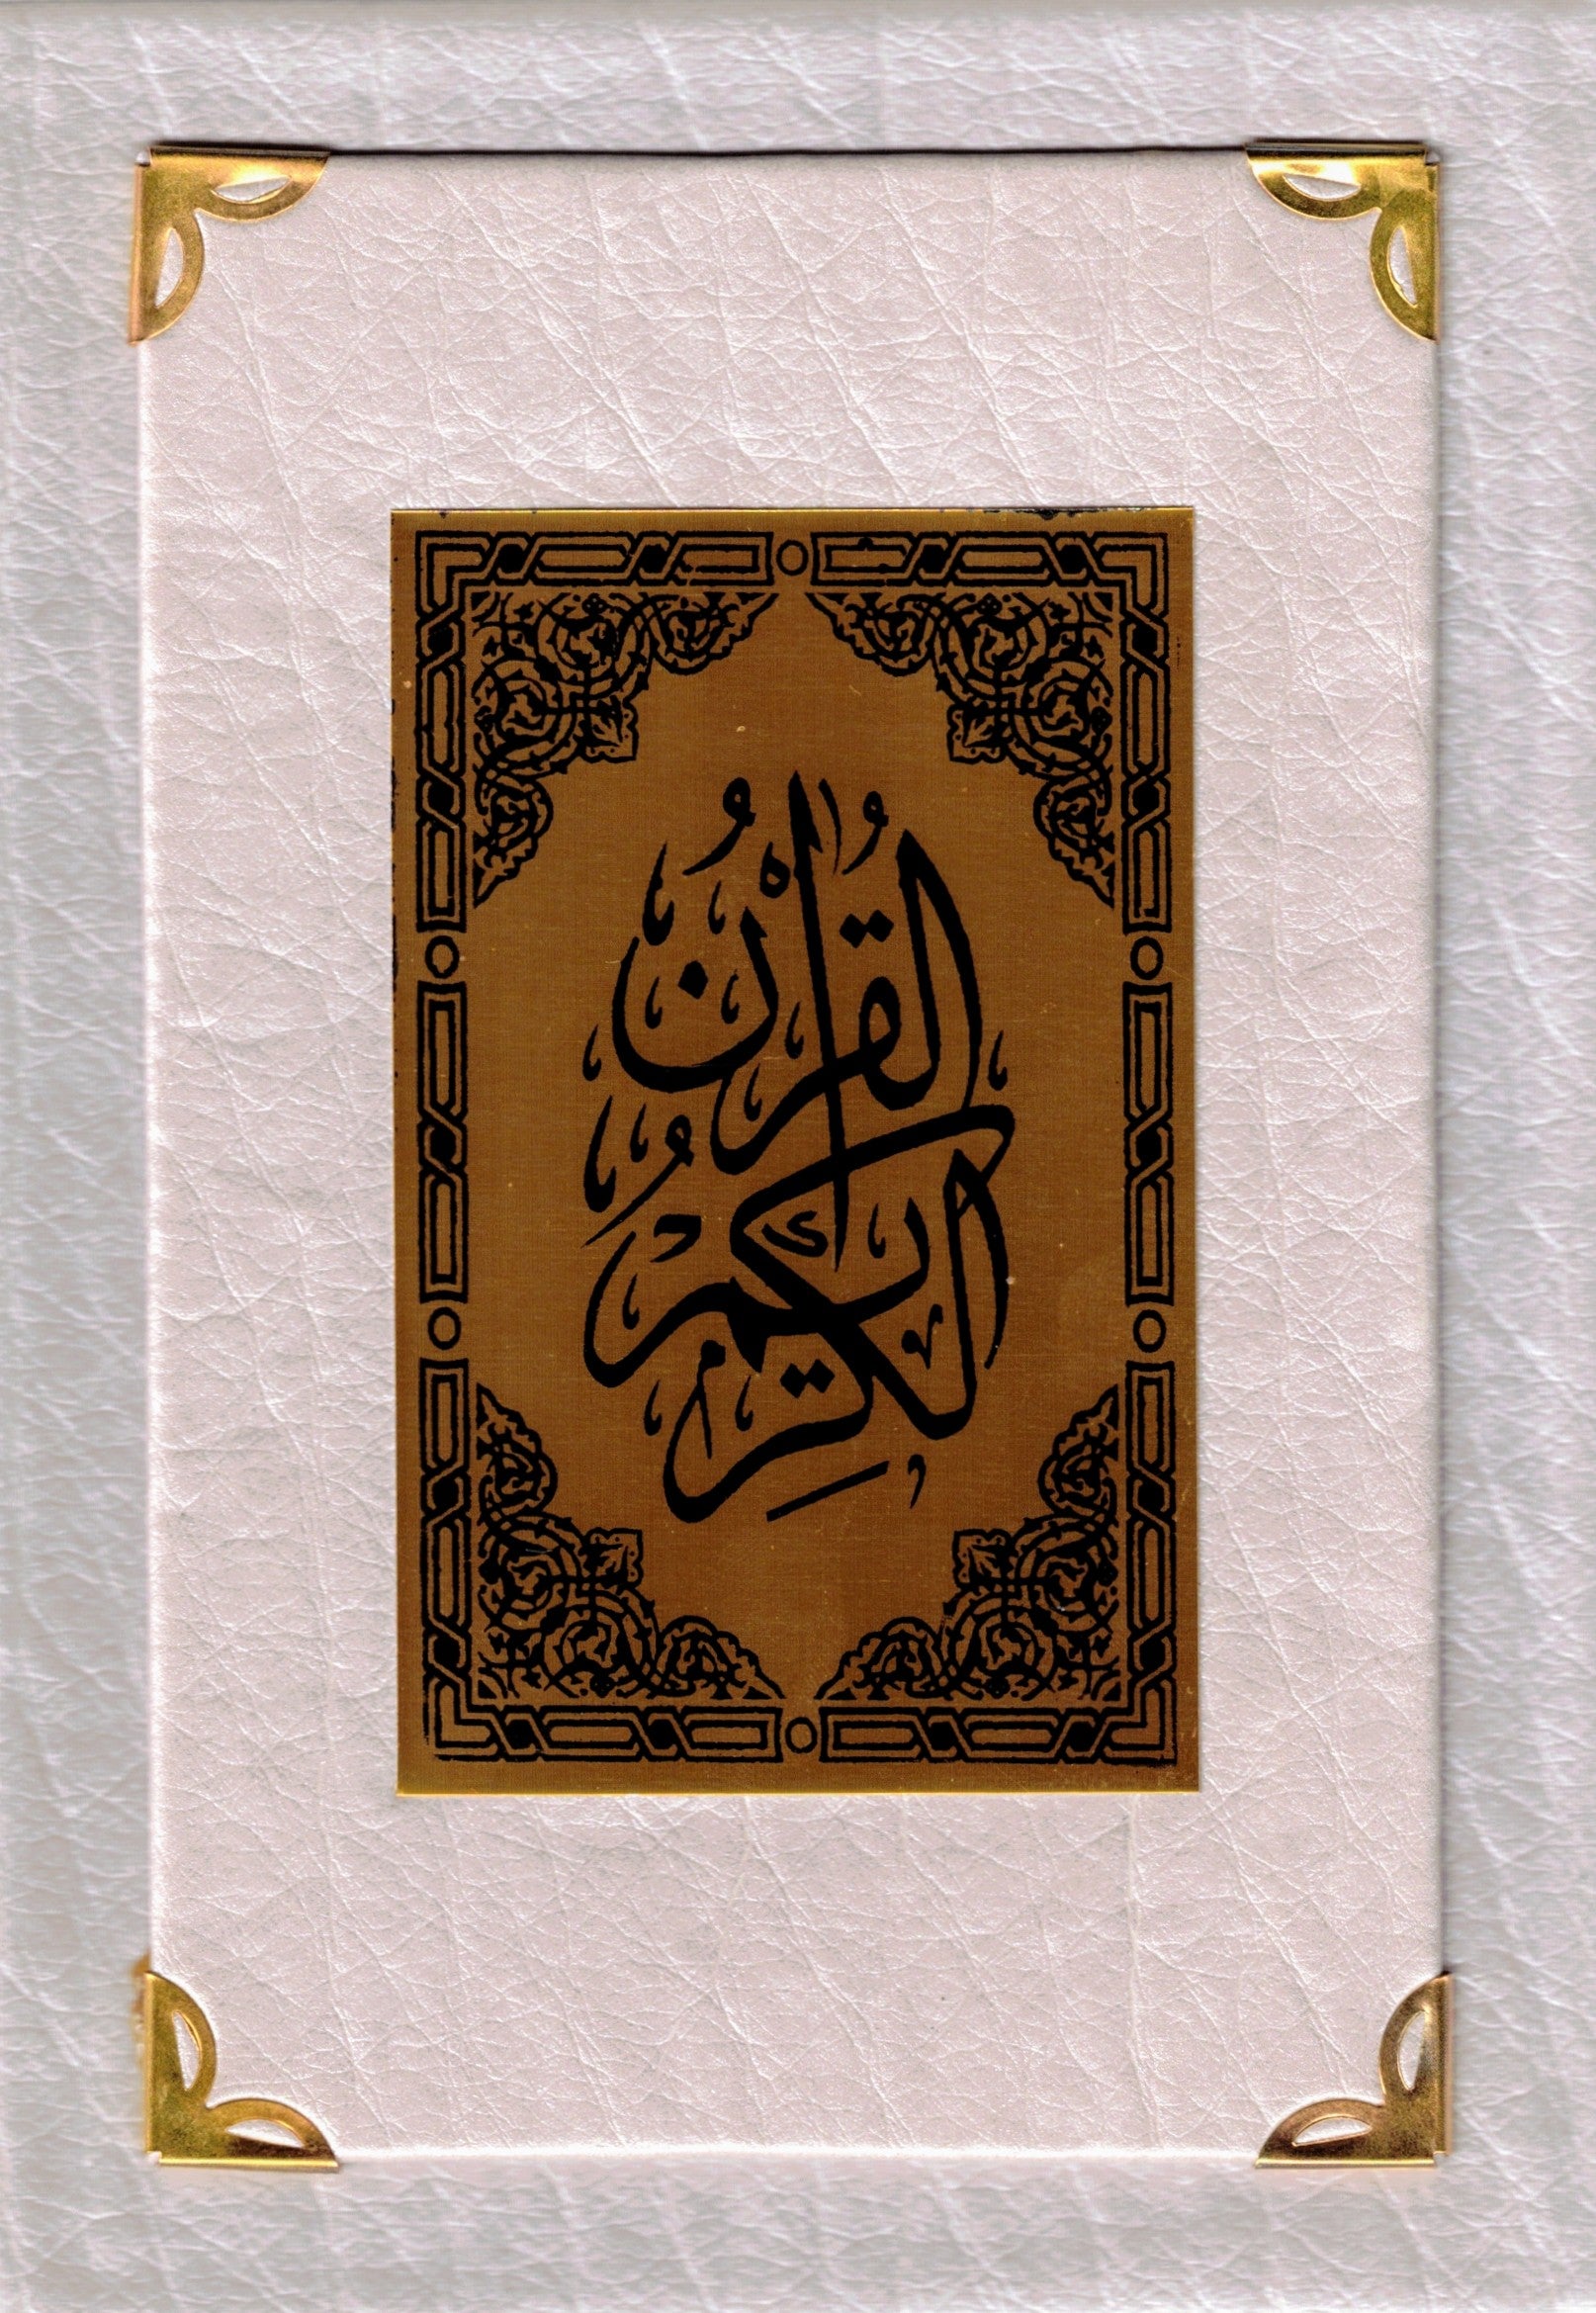 القُرْآنُ
الكَرِيمُ